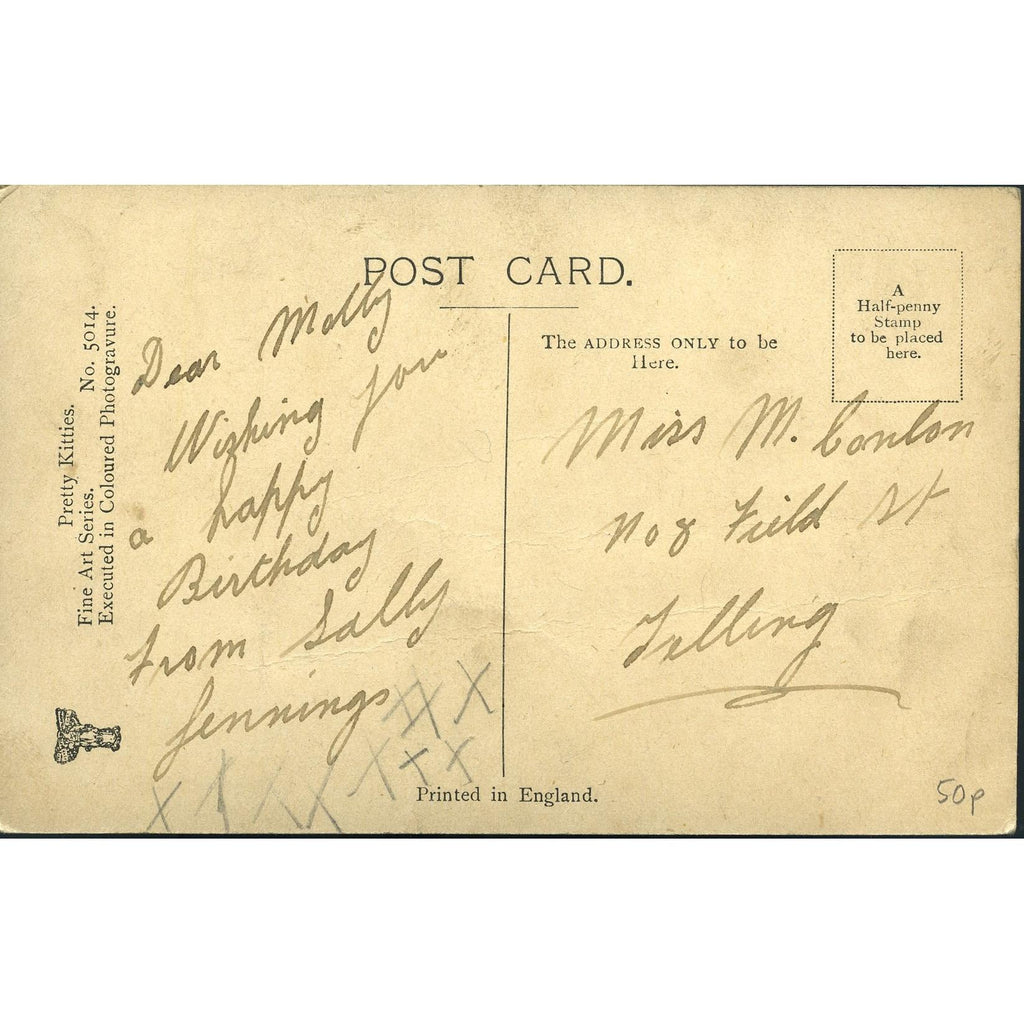 POST CARD.
Pretty Kitties.
Fine Art Series. No. 5014.
Executed in Coloured Photogravure.
Dear Molly
Wishing you
a happy
Birthday
from Sally
Jennings
X X X
X X X X X X
The ADDRESS ONLY to be
Here.
A
Half-penny
Stamp
to be placed
here.
Miss M. Conlon
No 8 Field St
Felling
Printed in England.
50p